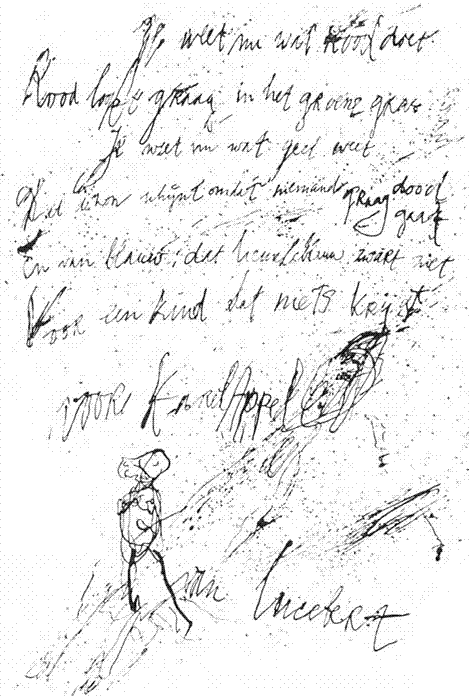 Je weet nu wat rood doet
Rood loopt graag in het groene gras
Je weet nu wat geel weet
Het schijnt omdat niemand graag dood
gaat
En van blauw: dat zwart ziet
Voor een kind dat niets krijgt
voor Karel Appel
van lucebert